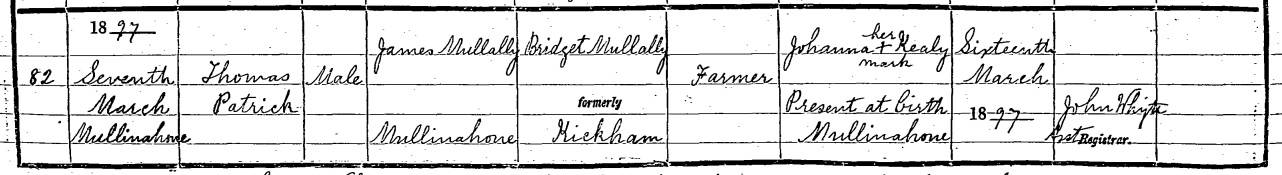 1897
James Mullally Bridget Mullally Johanna her + mark Kealy Sixteenth
82 Seventh Thomas Male Farmer March
March Patrick formerly Present at birth 1897 John Whyte
Mullinahone Mullinahone Kickham Mullinahone Asst Registrar.